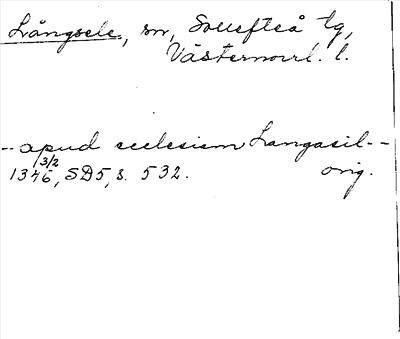 Långsele, sn, Sollefteå tg,
Västernorrl. l.
-- apud ecclesiam Langasil --
1346 3/2, SD5, s. 532. orig.